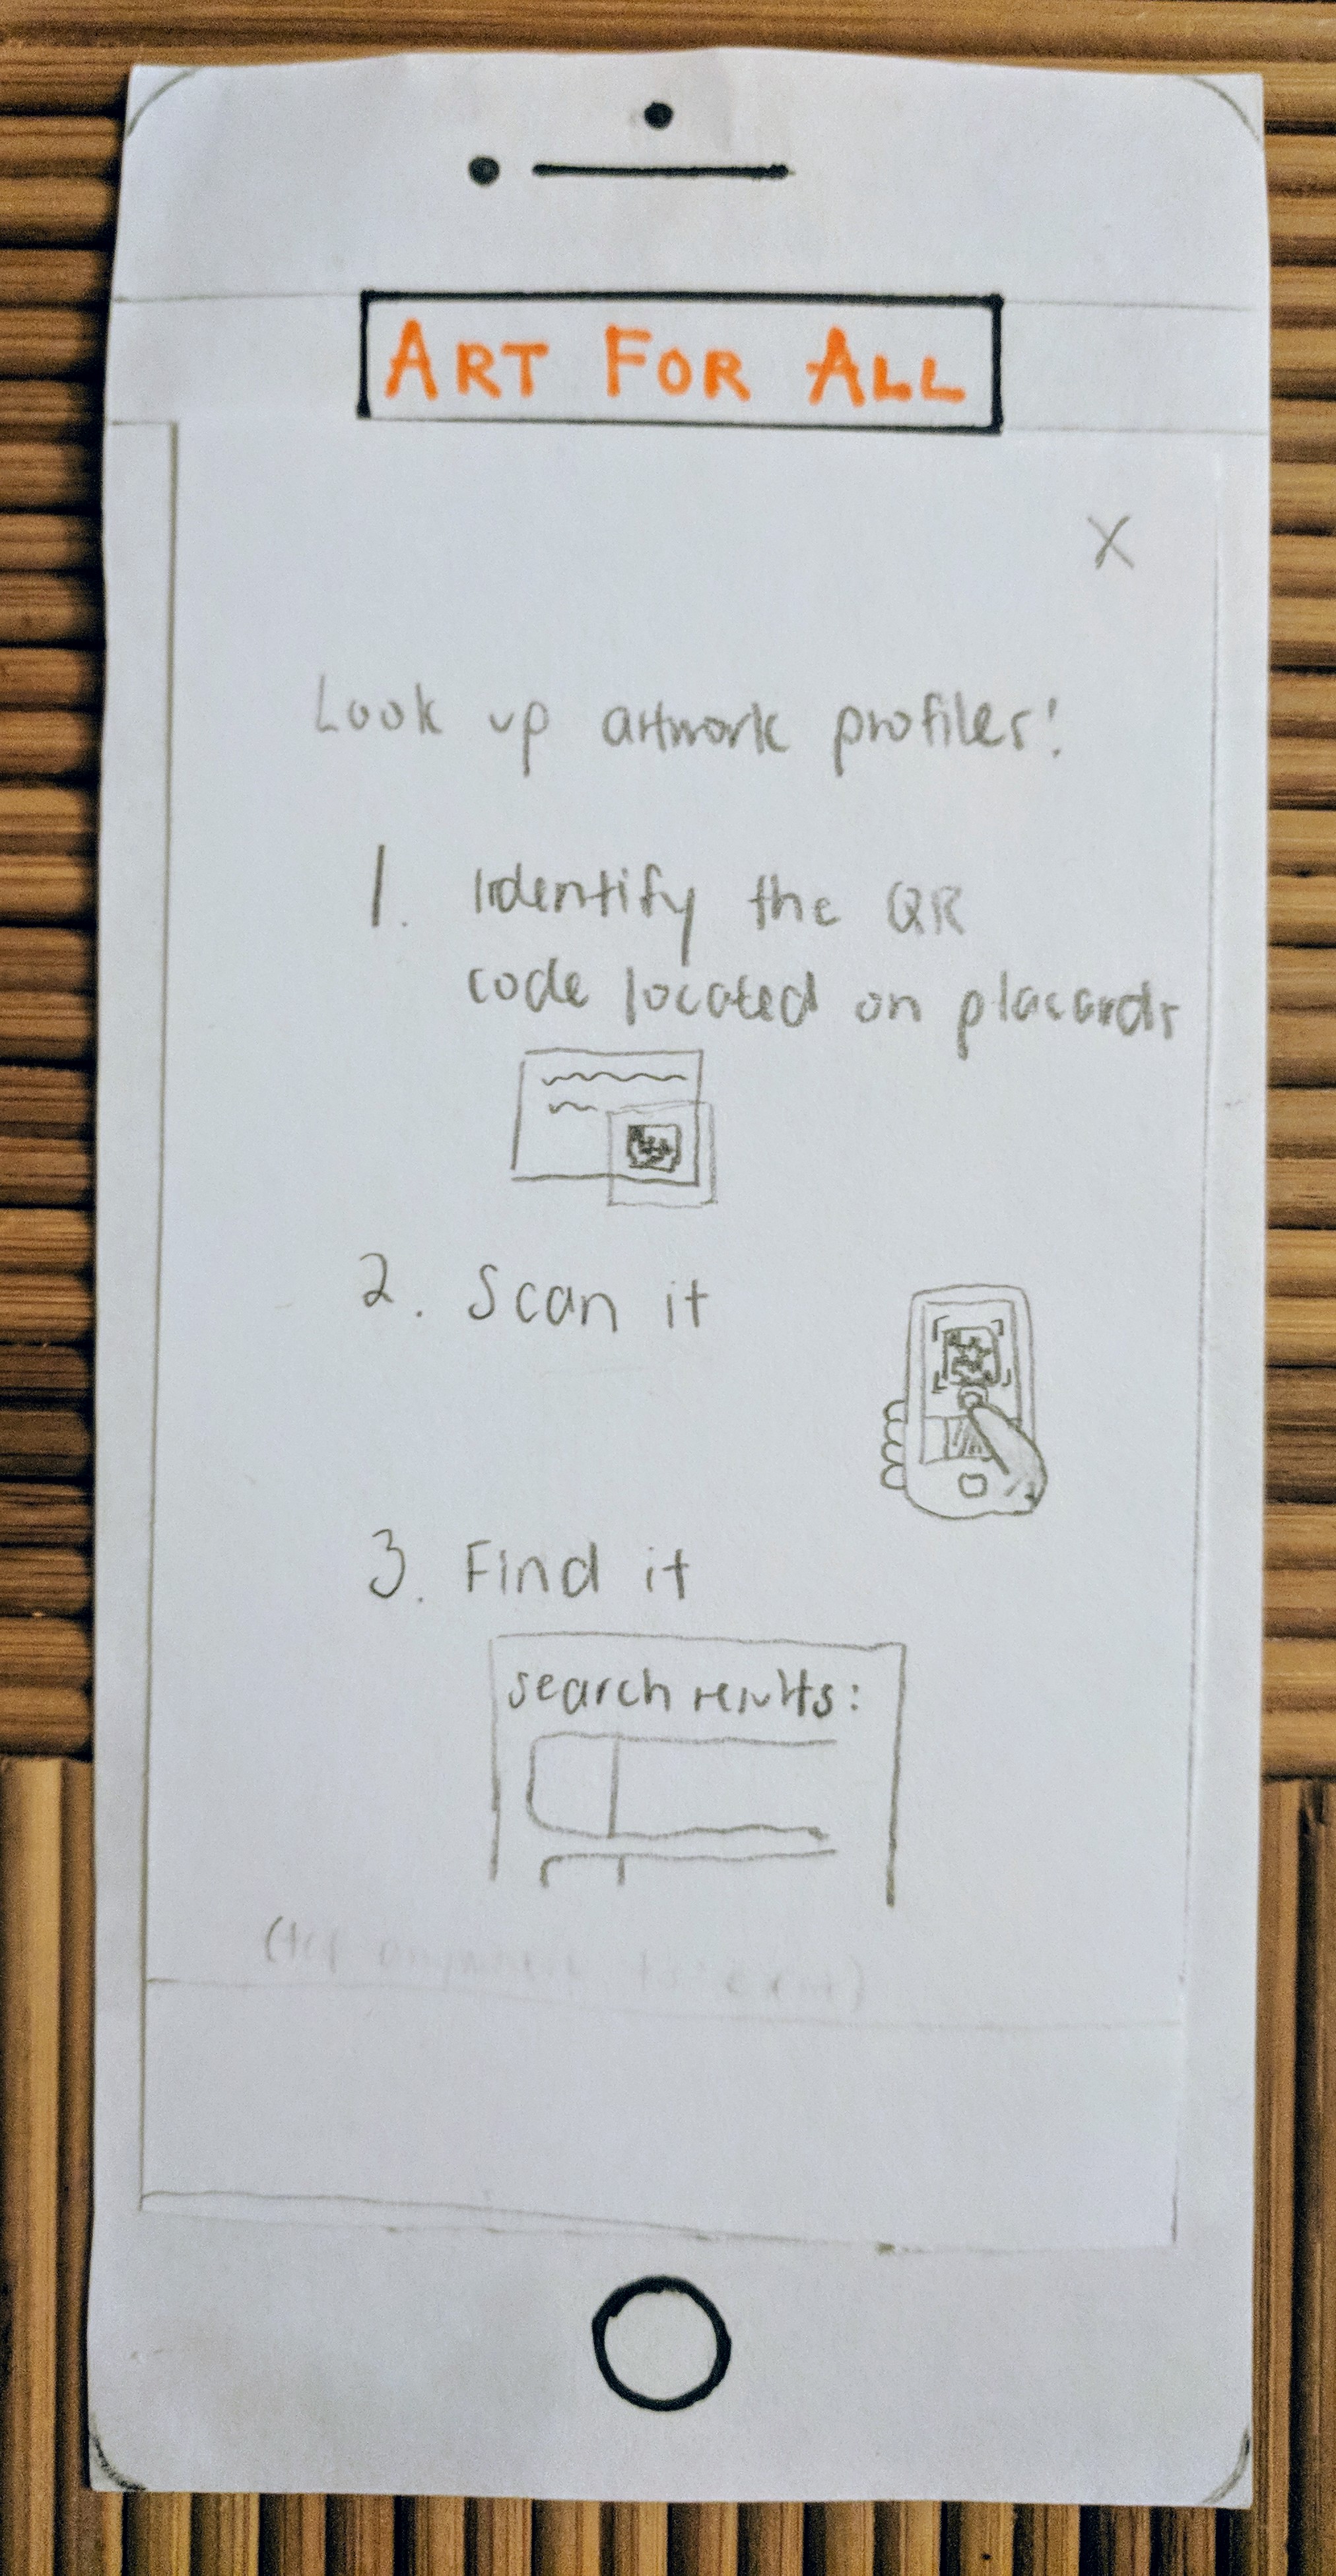 ART FOR ALL
X
Look up artwork profiles!
1. Identify the QR
code located on placards
2. Scan it
3. Find it
search results:
(tap anywhere to exit)